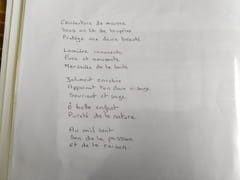 Couverture de mousse
Dans un lit de bruyère
Protège une douce beauté
Lumière innocente
Pure et amusante
Merveille de la forêt
Joliment enrobée
Apparaît ton doux visage
Souriant et sage
Ô belle enfant
Pureté de la nature
Au mil sens
Sens de la passion
et de la raison.